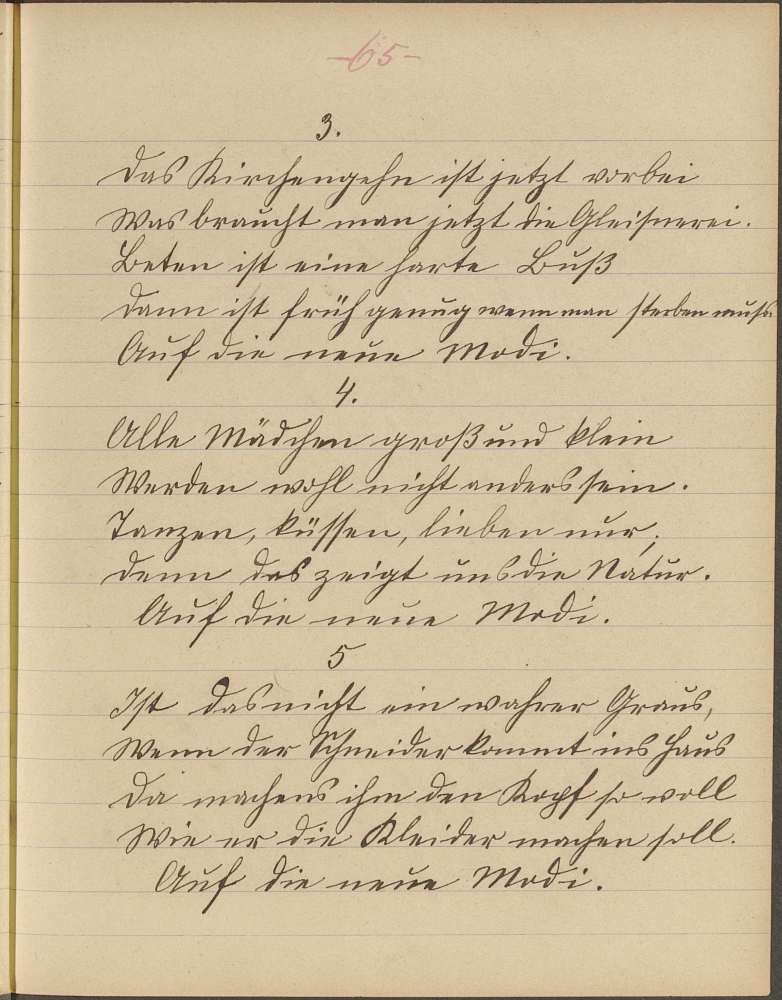 -65-
3.
Das Kirchengehn ist jetzt vorbei
Was braucht man jetzt die Gleisnerei.
Beten ist eine harte Buß
Dann ist früh genug wenn man sterben muß
Auf die neue Modi.
4.
Alle Mädchen groß und klein
Werden wohl nicht anders sein.
Tanzen, küssen, lieben nur,
denn das zeigt uns die Natur.
Auf die neue Modi.
5
Ist das nicht ein wahrer Graus,
Wenn der Schneider kommt ins Haus
Da machens ihm den Kopf so voll
Wie er die Kleider machen soll.
Auf die neue Modi.